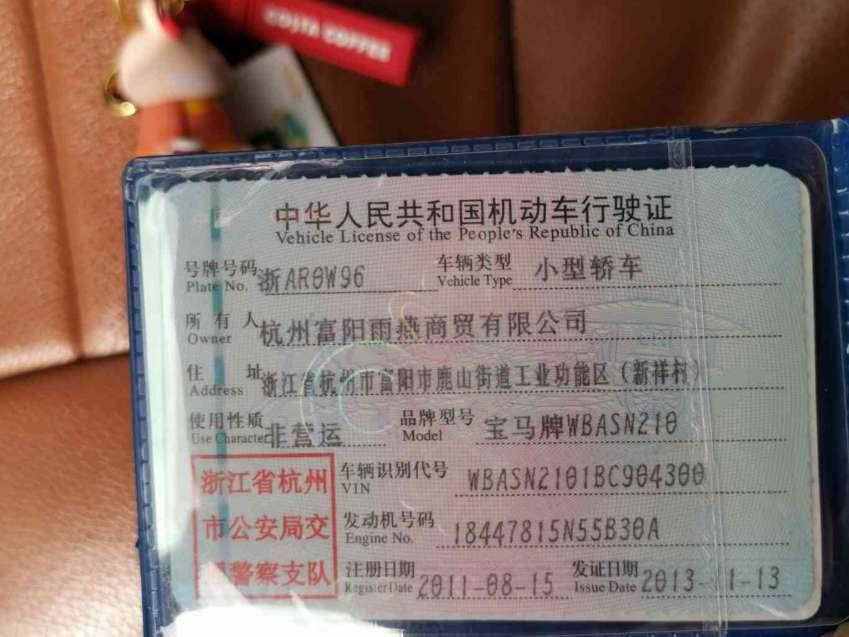 COSTA COFFEE
中华人民共和国机动车行驶证
Vehicle License of the People's Republic of China
号牌号码 Plate No. 浙AR0W96 车辆类型 Vehicle Type 小型轿车
所有人 Owner 杭州富阳雨燕商贸有限公司
住址 Address 浙江省杭州市富阳市鹿山街道工业功能区（新祥村）
使用性质 Use Character 非营运 品牌型号 Model 宝马牌WBASN210
车辆识别代号 VIN WBASN2101BC904300
发动机号码 Engine No. 18447815N55B30A
注册日期 Register Date 2011-08-15 发证日期 Issue Date 2013- 1-13
浙江省杭州
市公安局交
警察支队